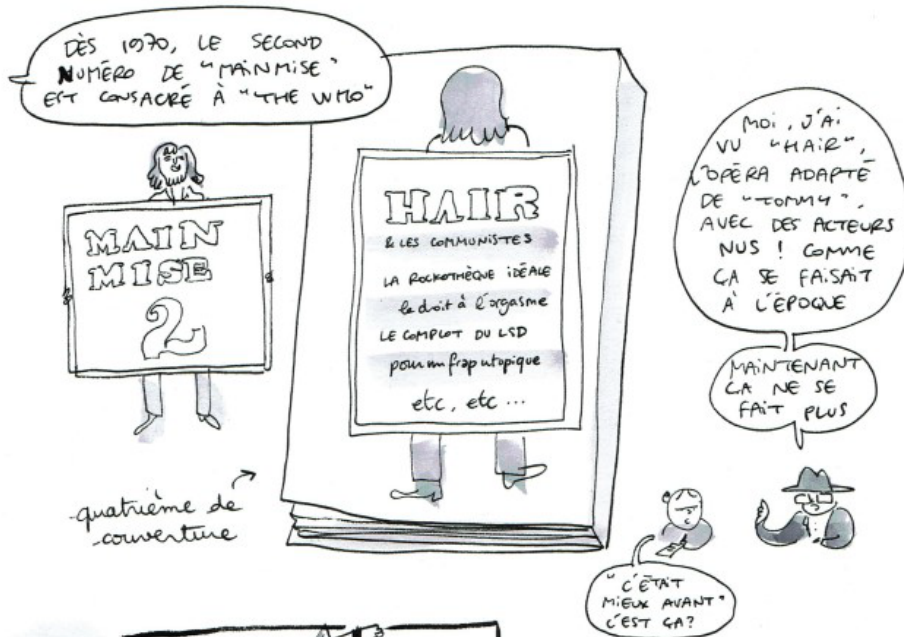 DÈS 1970, LE SECOND
NUMÉRO DE "MAINMISE"
EST CONSACRÉ À "THE WHO"
MAIN
MISE
2
HAIR
& LES COMMUNISTES
LA ROCKOTHÈQUE IDÉALE
le droit à l'orgasme
LE COMPLOT DU LSD
pour un frap utopique
etc, etc ...
quatrième de
couverture
MOI, J'AI
VU "HAIR",
L'OPÉRA ADAPTÉ
DE "TOMMY",
AVEC DES ACTEURS
NUS ! COMME
ÇA SE FAISAIT
À L'ÉPOQUE
MAINTENANT
ÇA NE SE
FAIT PLUS
"C'ÉTAIT
MIEUX AVANT"
C'EST ÇA?